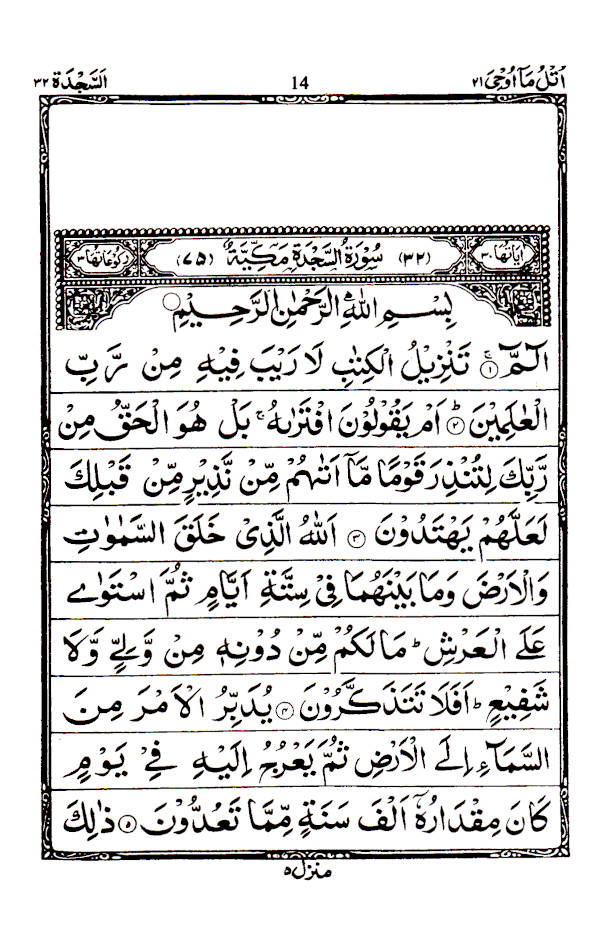 اُتْلُ مَآ اُوْحِیَ ۲۱ 14 اَلسَّجْدَة ۳۲
اٰیَاتُهَا ۳۰ (۳۲) سُوْرَةُ السَّجْدَةِ مَكِّیَّةٌ (۷۵) رُكُوْعَاتُهَا ۳
بِسْمِ اللّٰهِ الرَّحْمٰنِ الرَّحِیْمِ
الٓمّٓ ۚ﴿۱﴾ تَنْزِیْلُ الْكِتٰبِ لَا رَیْبَ فِیْهِ مِنْ رَّبِّ
الْعٰلَمِیْنَ ؕ﴿۲﴾ اَمْ یَقُوْلُوْنَ افْتَرٰىهُ ۚ بَلْ هُوَ الْحَقُّ مِنْ
رَّبِّكَ لِتُنْذِرَ قَوْمًا مَّاۤ اَتٰىهُمْ مِّنْ نَّذِیْرٍ مِّنْ قَبْلِكَ
لَعَلَّهُمْ یَهْتَدُوْنَ ﴿۳﴾ اَللّٰهُ الَّذِیْ خَلَقَ السَّمٰوٰتِ
وَالْاَرْضَ وَمَا بَیْنَهُمَا فِیْ سِتَّةِ اَیَّامٍ ثُمَّ اسْتَوٰی
عَلَی الْعَرْشِ ؕ مَا لَكُمْ مِّنْ دُوْنِهٖ مِنْ وَّلِیٍّ وَّلَا
شَفِیْعٍ ؕ اَفَلَا تَتَذَكَّرُوْنَ ﴿۴﴾ یُدَبِّرُ الْاَمْرَ مِنَ
السَّمَآءِ اِلَی الْاَرْضِ ثُمَّ یَعْرُجُ اِلَیْهِ فِیْ یَوْمٍ
كَانَ مِقْدَارُهٗۤ اَلْفَ سَنَةٍ مِّمَّا تَعُدُّوْنَ ﴿۵﴾ ذٰلِكَ
منزل ۵